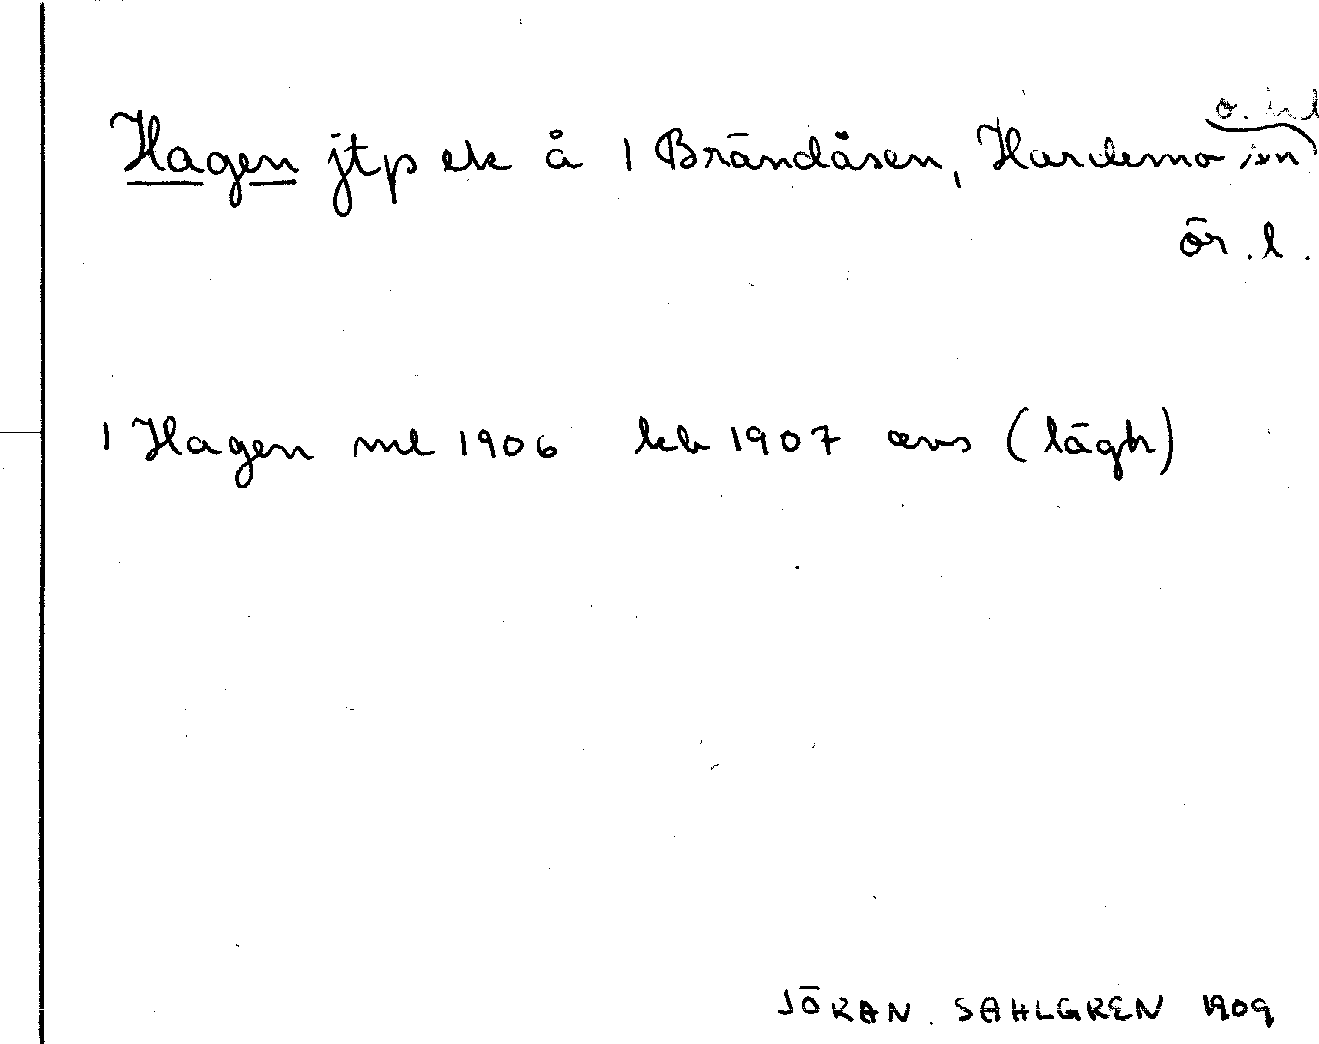 Hagen jtp ek å 1 Brändåsen, Hardemo sn
ör. l.
1 Hagen ml 1906 kb 1907 avs (lägh)
JÖRAN SAHLGREN 1909